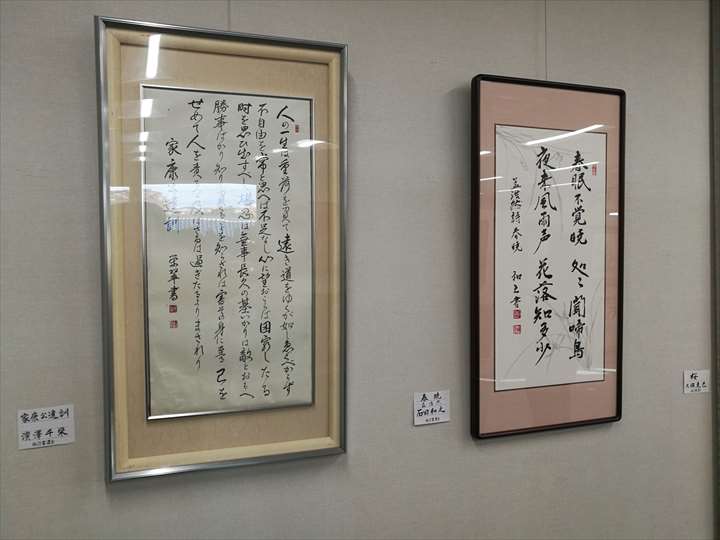 人の一生は重荷を負て遠き道をゆくが如しいそぐべからず
不自由を常と思へば不足なし心に望おこらば困窮したる
時を思ひ出すべし堪忍は無事長久の基いかりは敵とおもへ
勝事ばかり知りてまくる事を知らざれば害其身に至る己を
せめて人を責むるな及ばざるは過ぎたるよりまされり
家康公遺訓
書
家康公遺訓
春眠不覚暁 処々聞啼鳥
夜来風雨声 花落知多少
孟浩然詩春暁
書
春暁
石田和之
桜